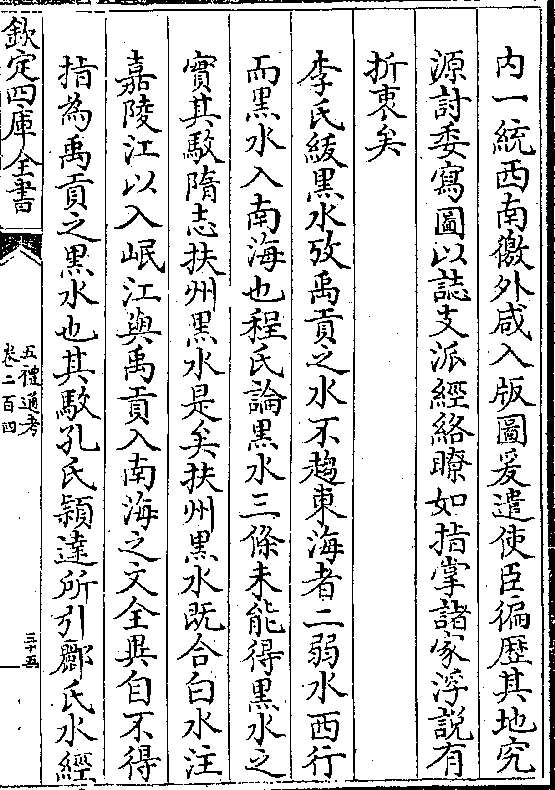 内一統西南徼外咸入版圖爰遣使臣徧歴其地究
源討委寫圖以誌支派經絡瞭如指掌諸家浮説有
折衷矣
李氏紱黒水攷禹貢之水不趨東海者二弱水西行
而黒水入南海也程氏論黒水三條未能得黒水之
實其駁隋志扶州黒水是矣扶州黒水既合白水注
嘉陵江以入岷江與禹貢入南海之文全異自不得
指為禹貢之黒水也其駁孔氏頴達所引酈氏水經
欽定四庫全書
五禮通考
卷二百四
三十五